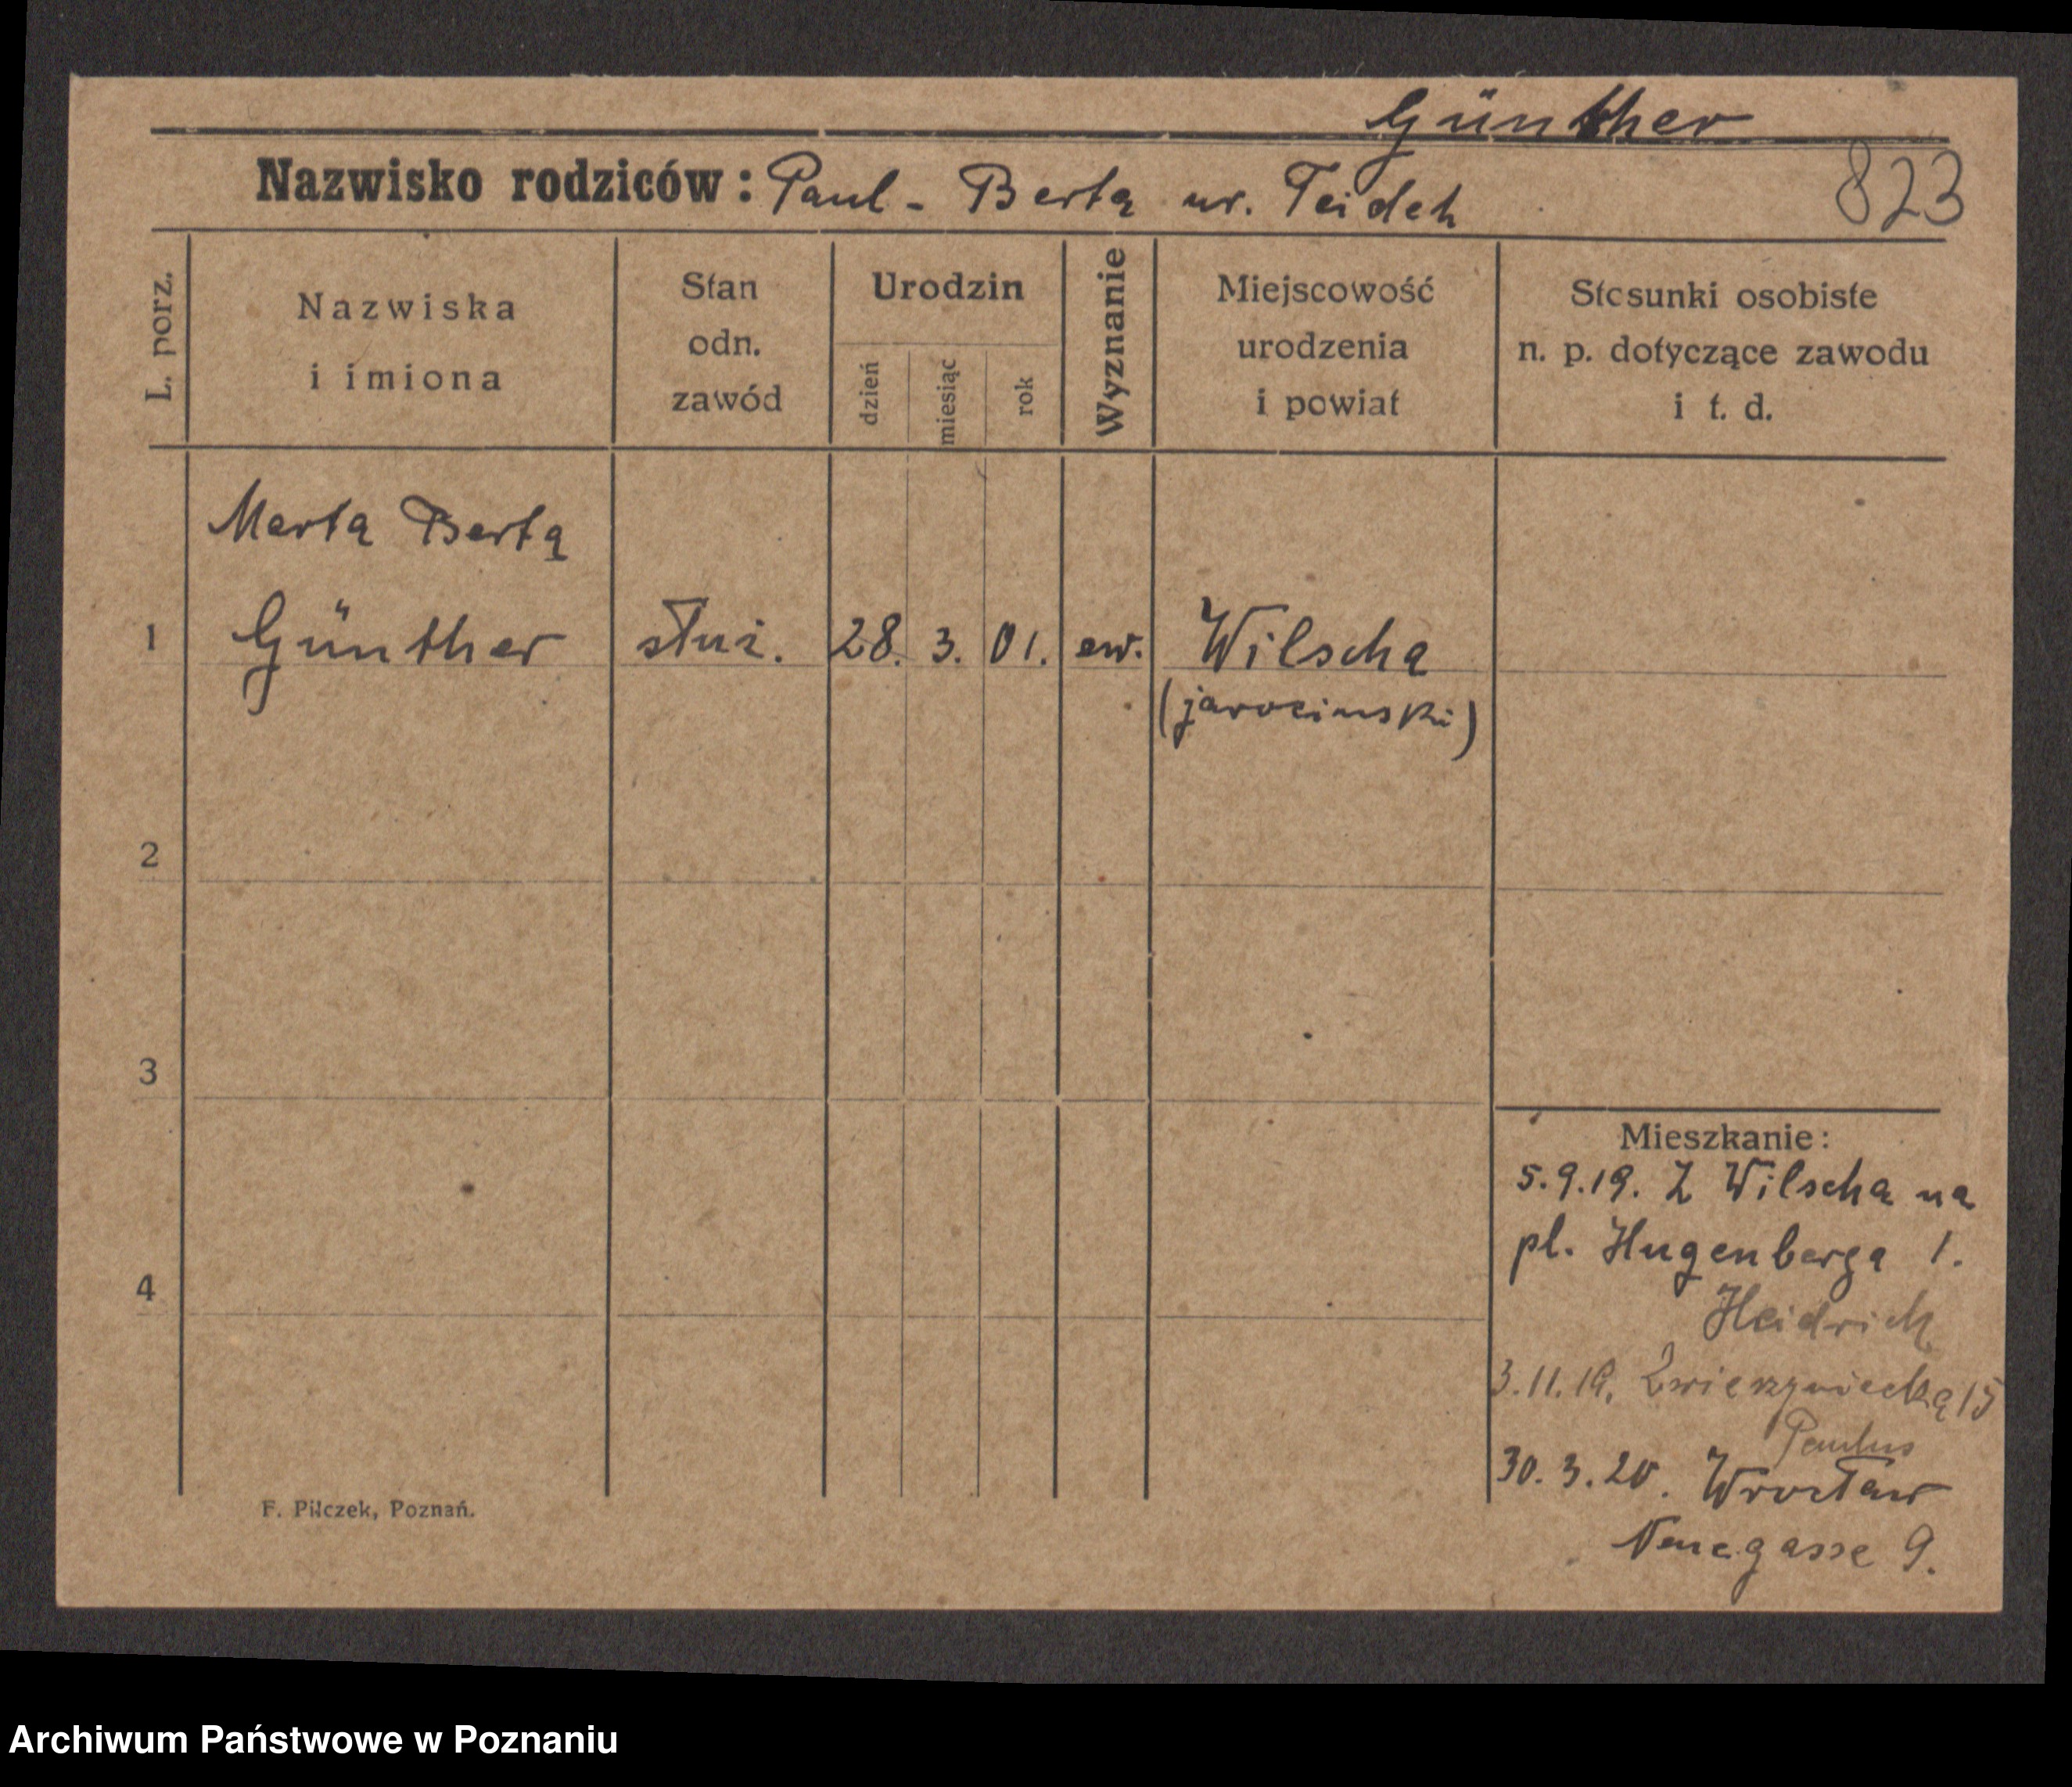 Günther
Nazwisko rodziców: Paul - Berta ur. Teideh
823
L. porz.
Nazwiska
i imiona
Stan
odn.
zawód
Urodzin
dzień
miesiąc
rok
Wyznanie
Miejscowość
urodzenia
i powiat
Stosunki osobiste
n. p. dotyczące zawodu
i t. d.
Marta Berta
1 Günther służ. 28. 3. 01. ew. Wilscha
(jarocinski)
2
3
4
Mieszkanie:
5.9.19. Z Wilscha na
pl. Hugenberga 1.
Heidrich
3.11.19. Zwierzyniecka 15
Paulus
30.3.20. Wrocław
Neuegasse 9.
F. Pilczek, Poznań.
Archiwum Państwowe w Poznaniu